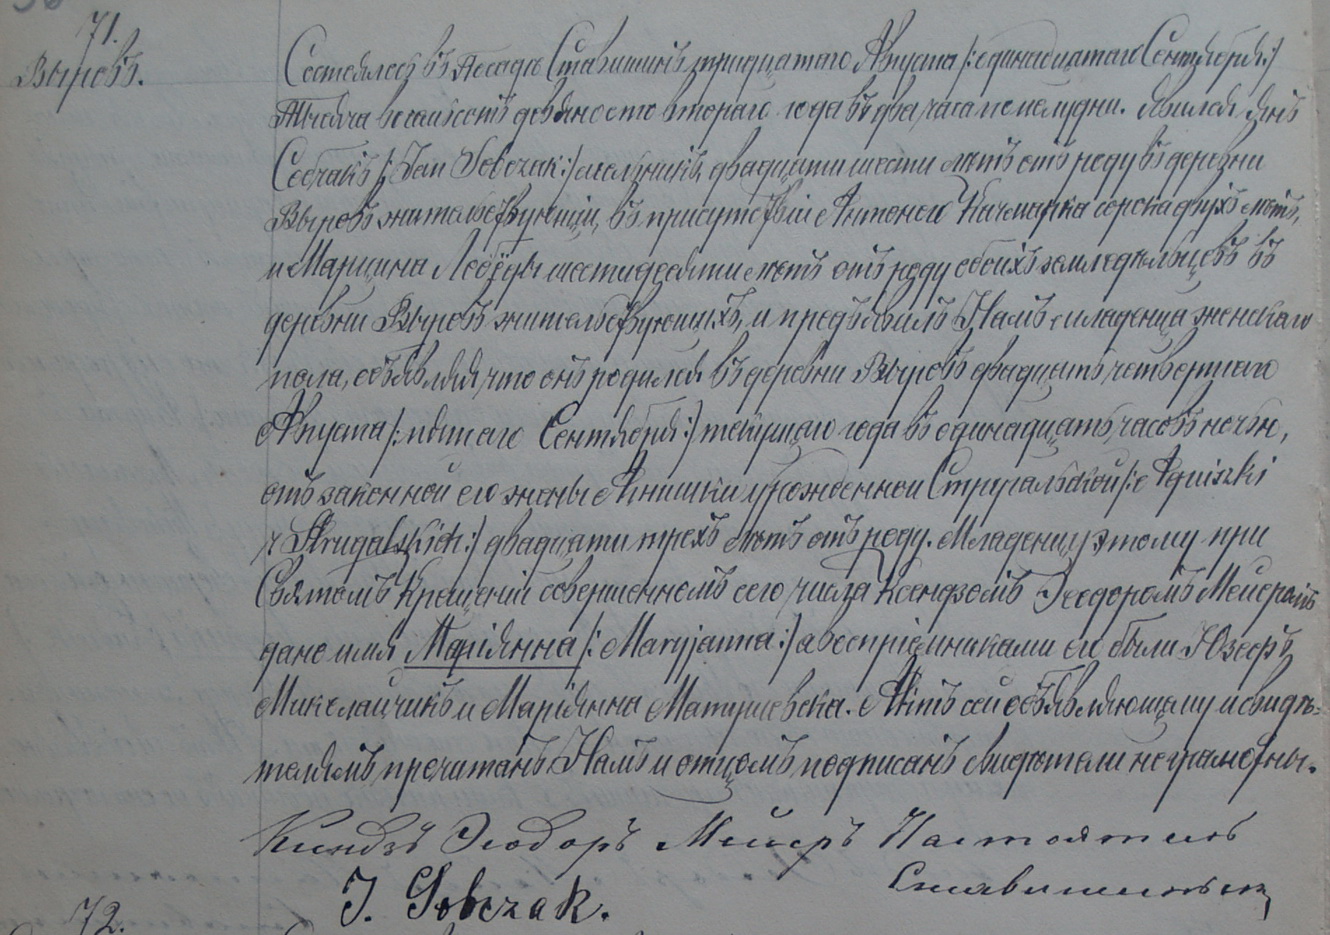 71.
Выровъ.
Состоялось въ Посадѣ Ставишинѣ тридцатаго Августа /:одинадцатаго Сентября:/
Тысяча восемьсотъ девяносто втораго года въ два часа по полудни. Явился Янъ
Собчакъ /:Jan Sobczak:/ мельникъ, двадцати шести лѣтъ отъ роду въ деревни
Выровъ жительствующій, въ присутствіи Антонего Качмарка сорока двухъ лѣтъ,
и Марцина Лебеды шестидесяти лѣтъ отъ роду обоихъ земледѣльцовъ въ
деревни Выровъ жительствующихъ, и предъявилъ Намъ младенца женскаго
пола, объявляя что онъ родился въ деревни Выровъ двадцать четвертаго
Августа /:пятаго Сентября:/ текущаго года въ одинадцать часовъ ночью,
отъ законной его жены Агнишки урожденной Стругальской /:Agniszki
z Strugalskich:/ двадцати трехъ лѣтъ отъ роду. Младенцу этому при
Святомъ Крещеніи совершенномъ сего числа Ксендзомъ Теодоромъ Мейеромъ
дано имя Маріянна /:Maryjanna:/ а воспріемниками его были Юзефъ
Миколайчикъ и Маріянна Матушевска. Актъ сей объявляющему и свидѣ=
телямъ прочитанъ Нами и отцомъ подписанъ свидѣтели неграмотны.
Ксендзъ Теодоръ Мейеръ Настоятель
J. Sobczak.
72.